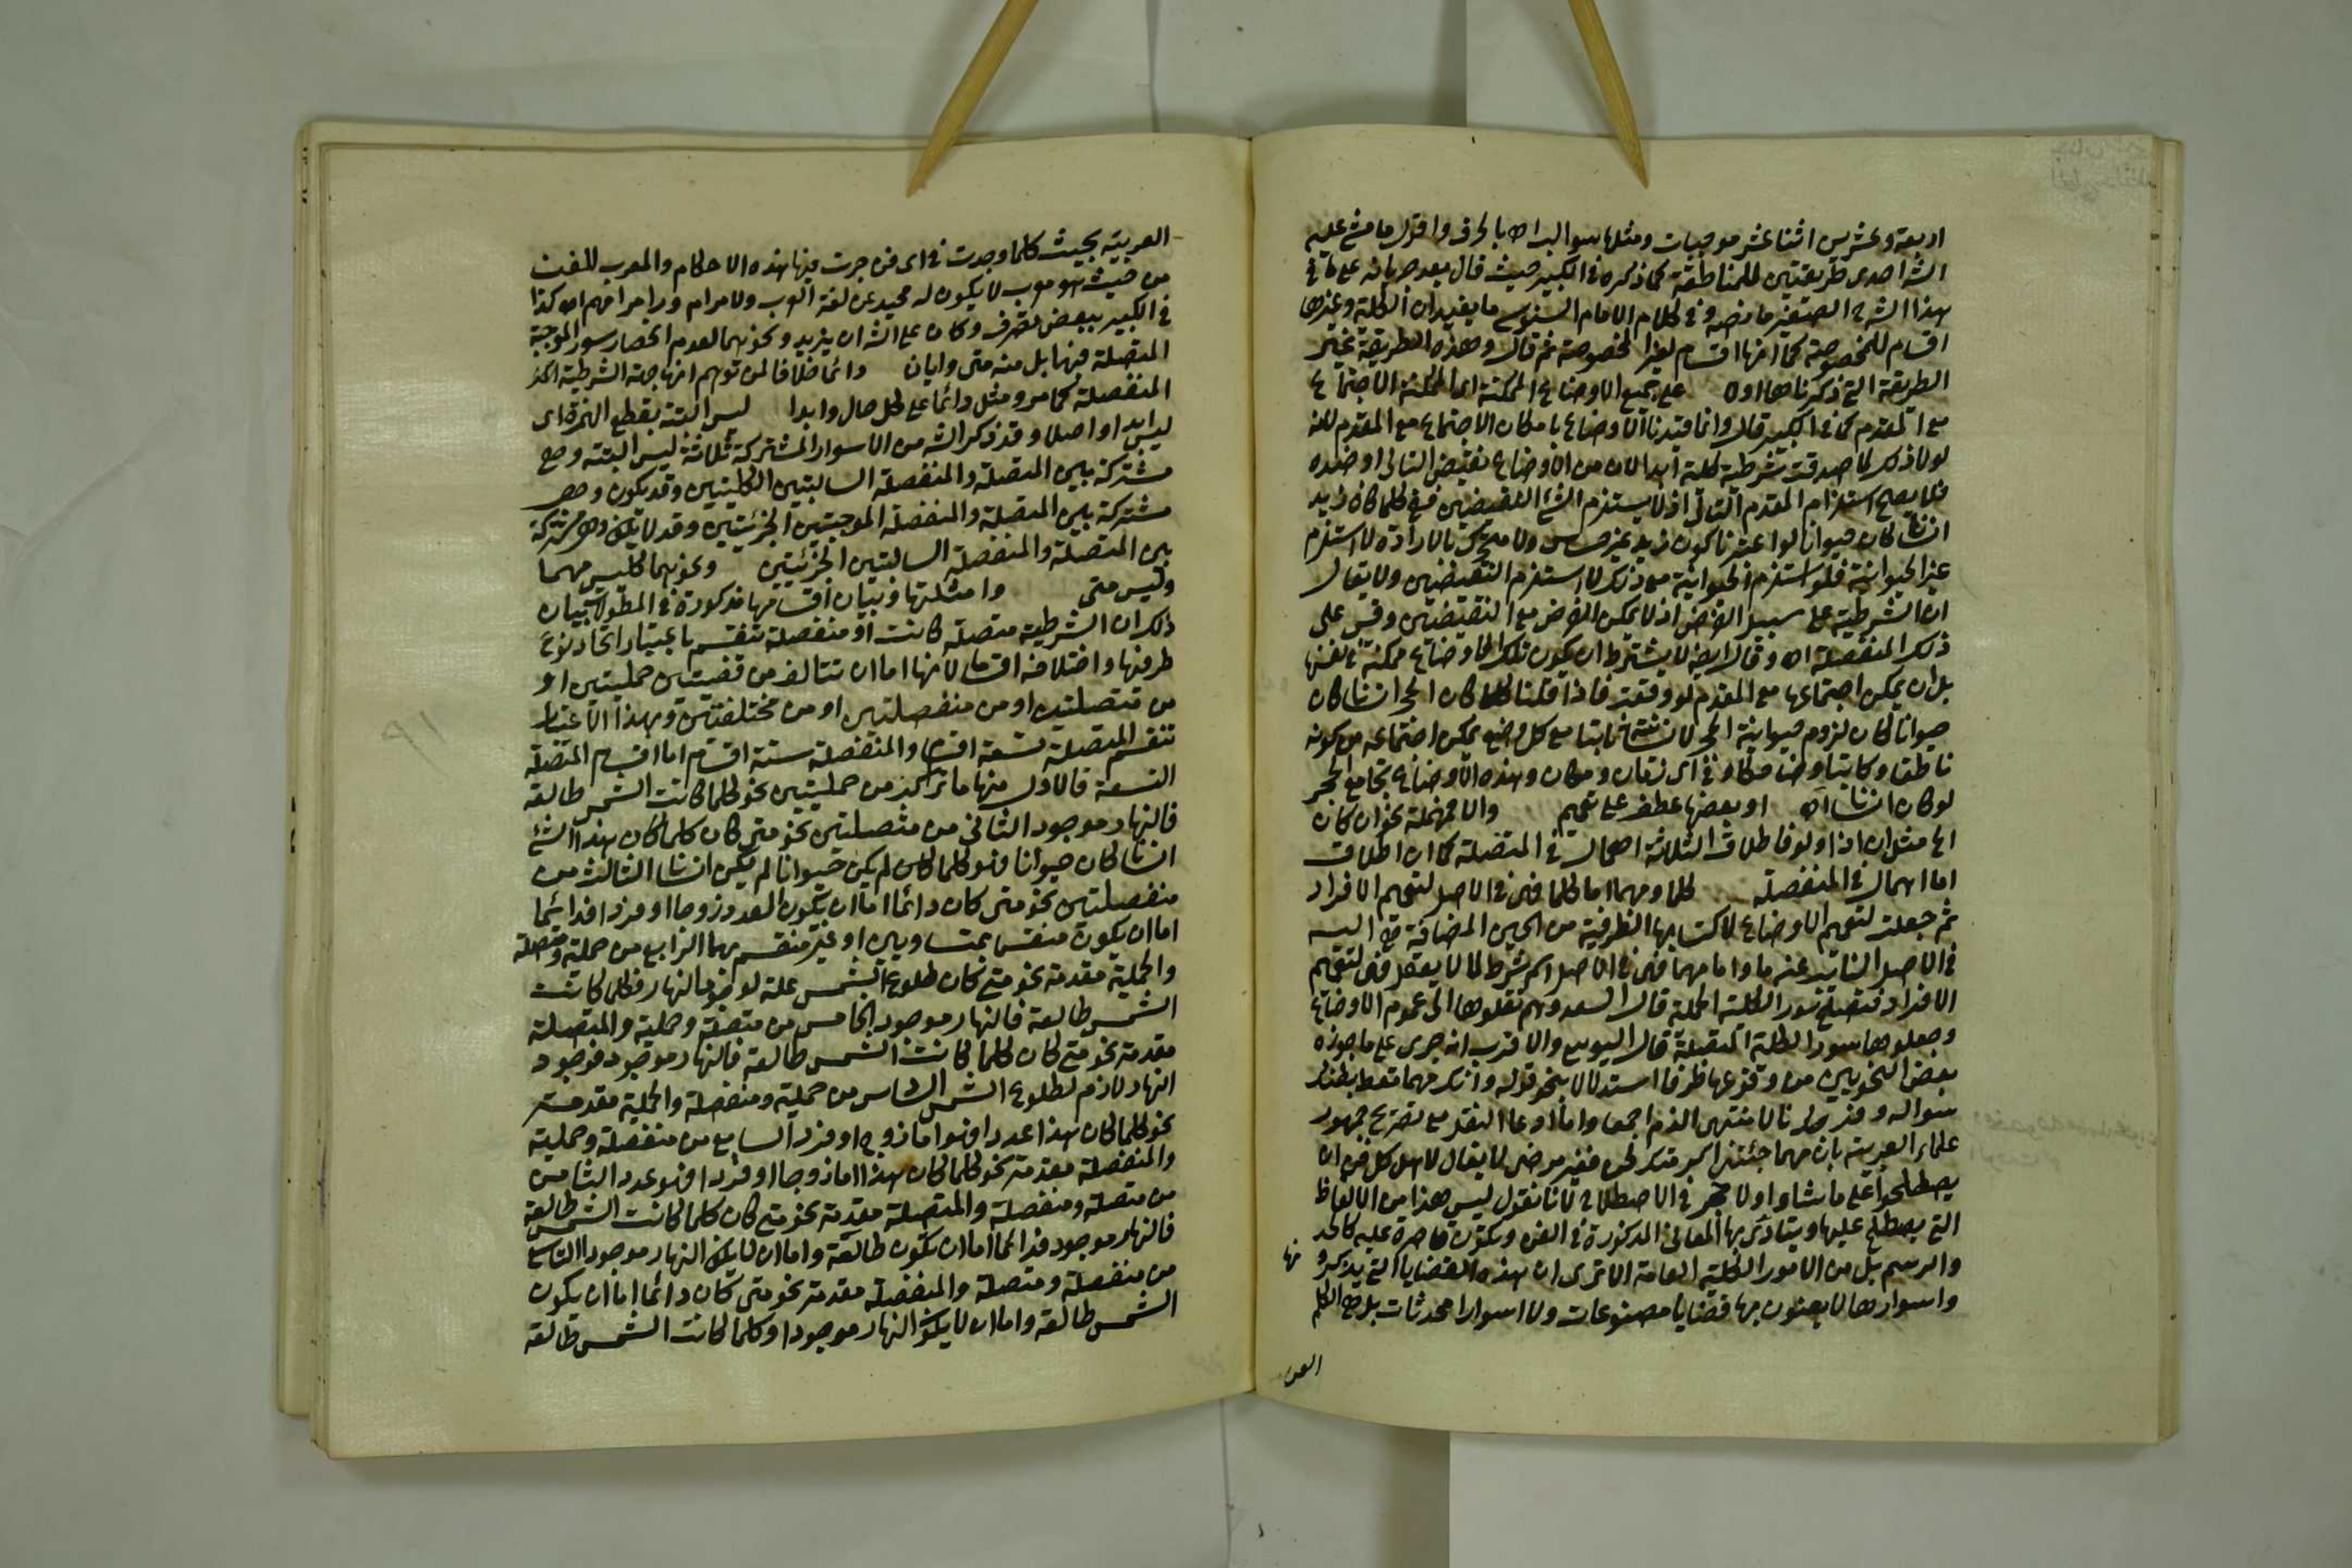 اربعة وعشرين اثنا عشر موجبات ومثلها سوالب اه بالحرف واقول ما مشى عليه
الشا احدى طريقتين للمناطقة كما ذكره في الكبير حيث قال بعد جريانه على ما في
هذا الشرح الصغير ما نصه وفي كلام الامام السنوسي ما يفيد ان الكلية وغيرها
اقسام للمخصوصة كما انها اقسام لغير المخصوصة ثم قال وهذه الطريقة غير
الطريقة التي ذكرناها اولا على جميع الاوضاع الممكنة اى الممكنة الاجتماع
مع المقدم كما في الكبير قال وانما قيدنا الاوضاع بامكان الاجتماع مع المقدم لانه
لولا ذلك لما صدقت شرطية كلية ابدا لان من الاوضاع نقيض التالى او ضده
فلا يصح استلزام المقدم التالى اذ لا يستلزم الشئ النقيضين ففي كلما كان زيد
انسانا كان حيوانا لو اعتبرنا كون زيد غير حساس ولا متحرك بالارادة لاستلزم
غير الحيوانية فلو استلزم الحيوانية مع ذلك لاستلزم النقيضين ولا يقال
ان الشرطية على سبيل الفرض اذ لا يمكن الفرض مع النقيضين وقس على
ذلك المنفصلة اه وقال ايضا لا يشترط ان يكون تلك الاوضاع ممكنة في نفسها
بل ان يمكن اجتماعها مع المقدم لو وقعت فاذا قلنا كلما كان الحجر انسانا كان
حيوانا كان لزوم حيوانية الحجر لانسانيته ثابتا مع كل وضع يمكن اجتماعه من كونه
ناطقا وكاتبا وضاحكا وفي اى زمان ومكان وهذه الاوضاع تجامع الحجر
لو كان انسانا اه او بعضها عطف على جميع والا فمهملة نحو ان كان
اى مثل ان اذا ولو فاطلاق الثلاثة اهمال في المتصلة كما ان اطلاق
اما اهمال في المنفصلة كلما ومهما اما كلما فهى في الاصل لتعميم الافراد
ثم جعلت لتعميم الاوضاع لاكتسابها الظرفية من الحين المضافة هى اليه
في الاصل النائب عنه ما واما مهما فهى في الاصل اسم شرط لما لا يعقل فهى لتعميم
الافراد فتصلح لسور الكلية الحملية قال السعد وهم نقلوها الى عموم الاوضاع
وجعلوها سور الكلية المتصلة قال اليوسى والاقرب انه جرى على ما جوزه
بعض النحويين من وقوعها ظرفا استدلالا بنحو قوله وانك مهما تعط بطنك
سؤاله وفرجك نالا منتهى الذم اجمعا واما ادعا النقل مع تصريح جمهور
علماء العربية بان مهما جئتنا اكرمتك لحن فغير مرضى لا يقال لاهل كل فن ان
يصطلحوا على ما شاوا ولا حجر في الاصطلاح لانا نقول ليس هذا من الالفاظ
التي يصطلح عليها ويتادى بها المعانى المذكورة في الفن وتكون قاصرة عليه كالحد
والرسم بل من الامور الكلية العامة الا ترى ان هذه القضايا التي يذكرو
نها
واسوارها لا يعنون بها قضايا مصنوعات ولا اسوارا محدثات بل هى الكلم
العر
العربية بحيث كلما وجدت في اى فن جرت فيها هذه الاحكام والمعرب للفن
من حيث هو معرب لا يكون له محيد عن لغة العرب ولا مرام وراء مرامهم اه كذا
في الكبير ببعض تصرف وكان على الشا ان يزيد ونحوهما لعدم انحصار سور الموجبة
المتصلة فيها بل منه متى وايان دائما خلافا لمن توهم انها جهة الشرطية
المنفصلة كما مر ومثل دائما على كل حال وابدا ليس البتة بقطع الهمزة اى
ليس ابدا او اصلا وقد ذكر الشا من الاسوار المشتركة ثلاثة ليس البتة وهى
مشتركة بين المتصلة والمنفصلة السالبتين الكليتين وقد يكون وهى
مشتركة بين المتصلة والمنفصلة الموجبتين الجزئيتين وقد لا يكون وهى مشتركة
بين المتصلة والمنفصلة السالبتين الجزئيتين ونحوهما كليس مهما
وليس متى وامثلتها وبيان اقسامها مذكورة في المطولات بيان
ذلك ان الشرطية متصلة كانت او منفصلة تنقسم باعتبار اتحاد نوع
طرفيها واختلافه اقساما لانها اما ان تتالف من قضيتين حمليتين او
من متصلتين او من منفصلتين او من مختلفتين وبهذا الاعتبار
تنقسم المتصلة تسعة اقسام والمنفصلة ستة اقسام اما اقسام المتصلة
التسعة فالاول منها ما تركب من حمليتين نحو كلما كانت الشمس طالعة
فالنهار موجود الثانى من متصلتين نحو متى كان كلما كان هذا الشئ
انسانا كان حيوانا فهو كلما كان لم يكن حيوانا لم يكن انسانا الثالث من
منفصلتين نحو متى كان دائما اما ان يكون العدد زوجا او فردا فدائما
اما ان يكون منقسما بمتساويين او غير منقسم بهما الرابع من حملية ومتصلة
والحملية مقدمة نحو متى كان طلوع الشمس علة لوجود النهار فكلما كانت
الشمس طالعة فالنهار موجود الخامس من متصلة وحملية والمتصلة
مقدمة نحو متى كان كلما كانت الشمس طالعة فالنهار موجود فوجود
النهار لازم لطلوع الشمس السادس من حملية ومنفصلة والحملية مقدمة
نحو كلما كان هذا عددا فهو اما زوج او فرد السابع من منفصلة وحملية
والمنفصلة مقدمة نحو كلما كان هذا اما زوجا او فردا فهو عدد الثامن
من متصلة ومنفصلة والمتصلة مقدمة نحو متى كان كلما كانت الشمس طالعة
فالنهار موجود فدائما اما ان تكون طالعة واما ان لا يكون النهار موجودا التاسع
من منفصلة ومتصلة والمنفصلة مقدمة نحو متى كان دائما اما ان يكون
الشمس طالعة واما ان لا يكون النهار موجودا وكلما كانت الشمس طالعة